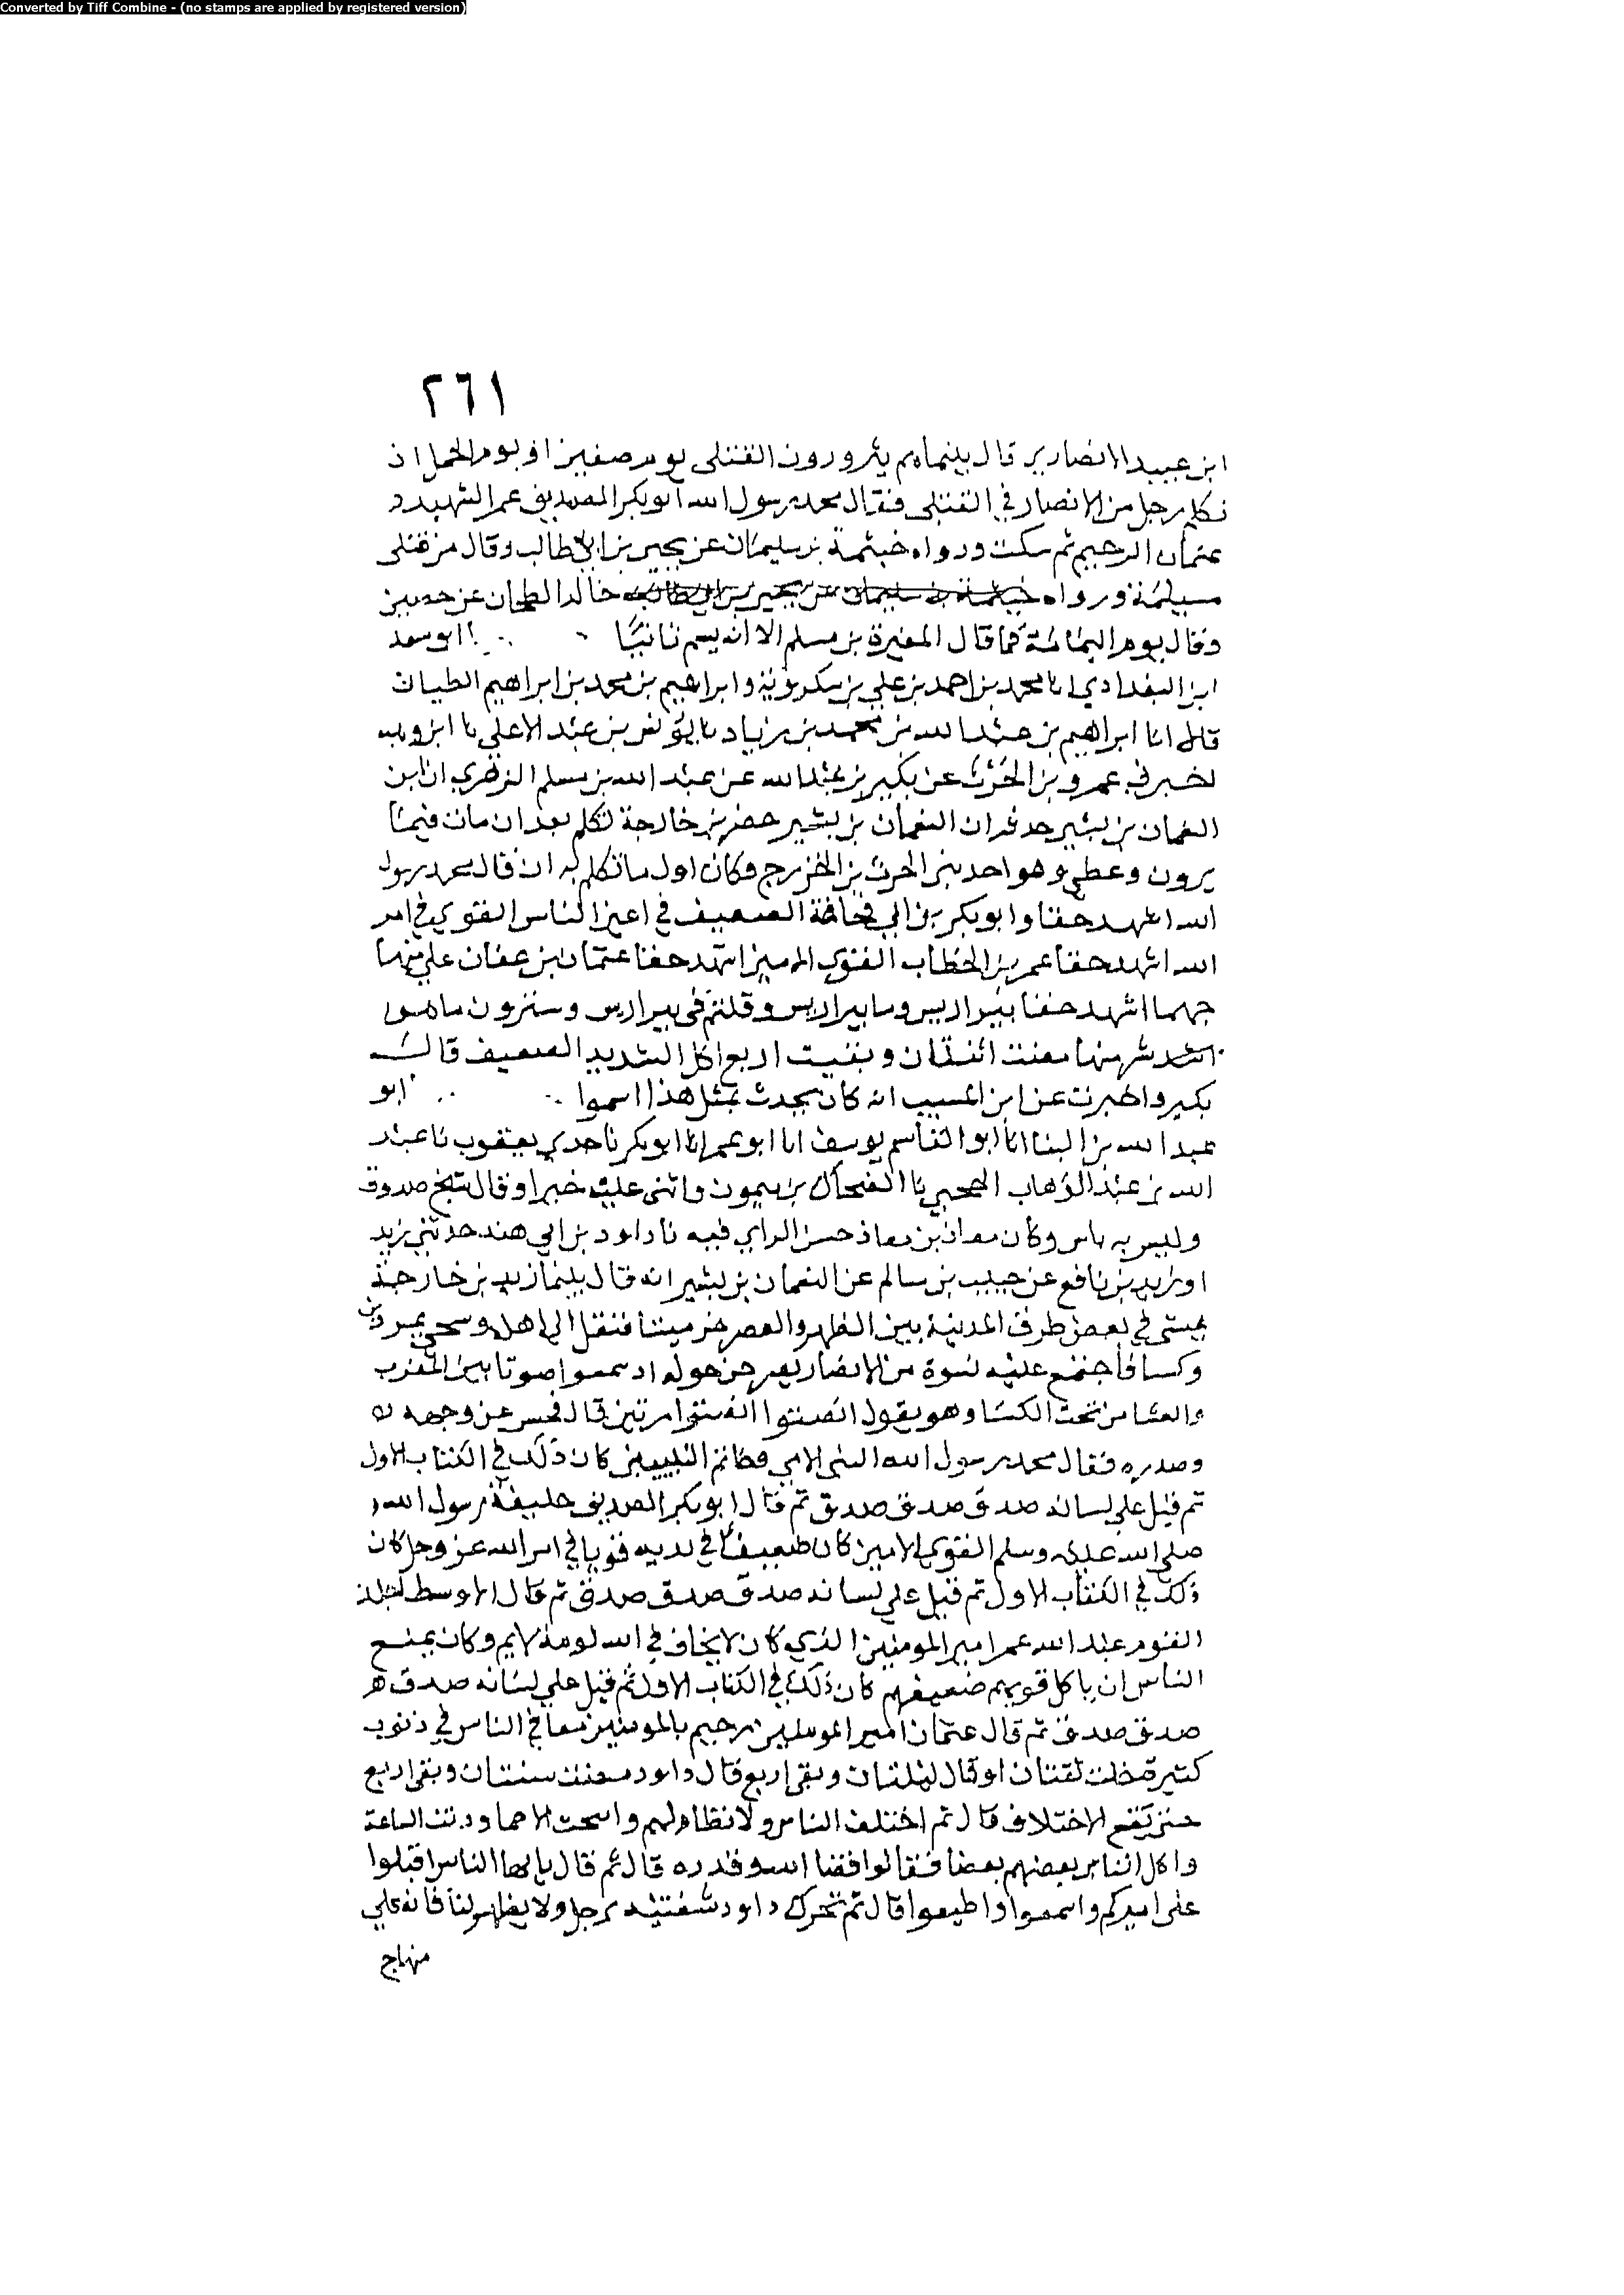 Converted by Tiff Combine - (no stamps are applied by registered version)
٢٦١
ابن عبيد الانصاري قال بينماهم يثورون القتلى يوم صفين او يوم الجمل اذ
تكلم رجل من الانصار في القتلى فقال محمد رسول الله ابو بكر الصديق عمر الشهيد
عثمان الرحيم ثم سكت ورواه خيثمة بن سليمان عن يحيى بن ابي طالب وقال من قتلى
مسيلمة ورواه خيثمة بن سليمان عن يحيى بن ابي طالب خالد الطحان عن حصين
وقال يوم اليمامة كما قال المغيرة بن مسلم الا انه يسم ثابتا ابو سعد
ابن البغدادي انا محمد بن احمد بن علي بن شكرويه وابراهيم بن محمد بن ابراهيم الطيان
قالا انا ابراهيم بن عبد الله بن محمد بن زياد نا يونس بن عبد الاعلى نا ابن وهب
اخبرني عمرو بن الحرث عن بكير بن عبد الله عن عبد الله بن مسلم الزهري ان ابن
النعمان بن بشير حدثه ان النعمان بن بشير حضر بن خارجة تكلم بعد ان مات فيما
يرون وغطي وهو احد بني الحرث بن الخزرج وكان اول ما تكلم به ان قال محمد رسول
الله اشهد حقا وابو بكر بن ابي قحافة الضعيف في اعين الناس القوي في امر
الله اشهد حقا عمر بن الخطاب القوي الامين اشهد حقا عثمان بن عفان على
اشهد حقا بير اريس وما بير اريس وقلتم في بير اريس وسترون ما هو
مضت اثنتان وبقيت اربع اكل الشديد الضعيف قال
بكير واخبرت عن ابن المسيب انه كان يحدث بمثل هذا اسموا ابو
عبد الله بن البنا انا ابو القاسم يوسف انا ابو عمر انا ابو بكر نا جدي يعقوب نا عبد
الله بن عبد الوهاب الحجبي نا الضحاك بن ميمون واثنى عليه خيرا وقال شيخ صدوق
وليس به باس وكان معاذ بن معاذ حسن الراي فيه نا داود بن ابي هند حدثني يزيد
او زيد بن نافع عن حبيب بن سالم عن النعمان بن بشير انه قال بينما زيد بن خارجة
يمشي في بعض طرق المدينة بين الظهر والعصر خر ميتا فنقل الى اهله وسجي ببردين
وكسا فاجتمع عليه نسوة من الانصار يصرخن حوله اذ سمعوا صوتا بين المغرب
والعشا من تحت الكسا وهو يقول انصتوا انصتوا مرتين قال فحسر عن وجهه
وصدره فقال محمد رسول الله النبي الامي وخاتم النبيين كان ذلك في الكتاب الاول
ثم قيل على لسانه صدق صدق صدق ثم قال ابو بكر الصديق خليفة رسول الله
صلى الله عليه وسلم القوي الامين كان ضعيفا في بدنه قويا في امر الله عز وجل كان
ذلك في الكتاب الاول ثم قيل على لسانه صدق صدق صدق ثم قال الاوسط
القوم عبد الله عمر امير المومنين الذي كان لا يخاف في الله لومة لايم وكان يمنع
الناس ان ياكل قويهم ضعيفهم كان ذلك في الكتاب الاول ثم قيل على لسانه صدق
صدق صدق ثم قال عثمان امير المومنين رحيم بالمومنين معافي الناس في ذنوب
كثيرة خلت ثنتان او قال ليلتان وبقي اربع قال داود مضت سنتان وبقي اربع
حتى يقع الاختلاف قال ثم اختلف الناس ولا نظام لهم وابيحت الاحما ودنت الساعة
واكل الناس بعضهم بعضا فقالوا قضا الله وقدره قال ثم قال يا ايها الناس اقبلوا
على اميركم واسمعوا واطيعوا قال ثم تحرك داود شفتيه برجل ولا يظهر لنا فانه على
منهاج